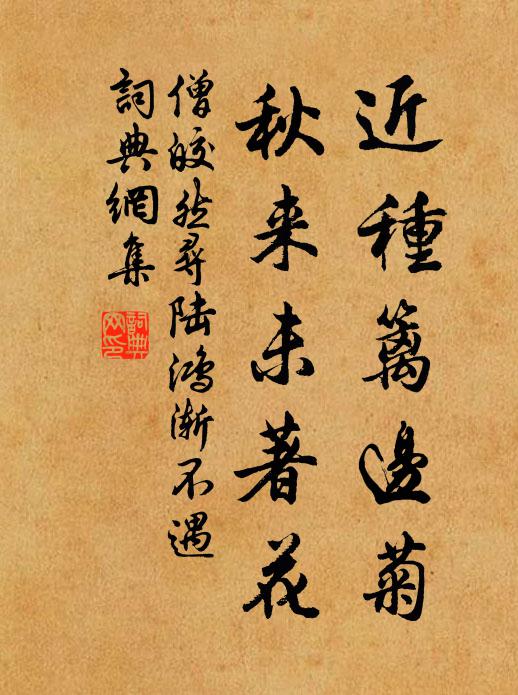 近種籬邊菊
秋来未著花
僧皎然尋陆鴻漸不遇
詞典網集
詞典網印